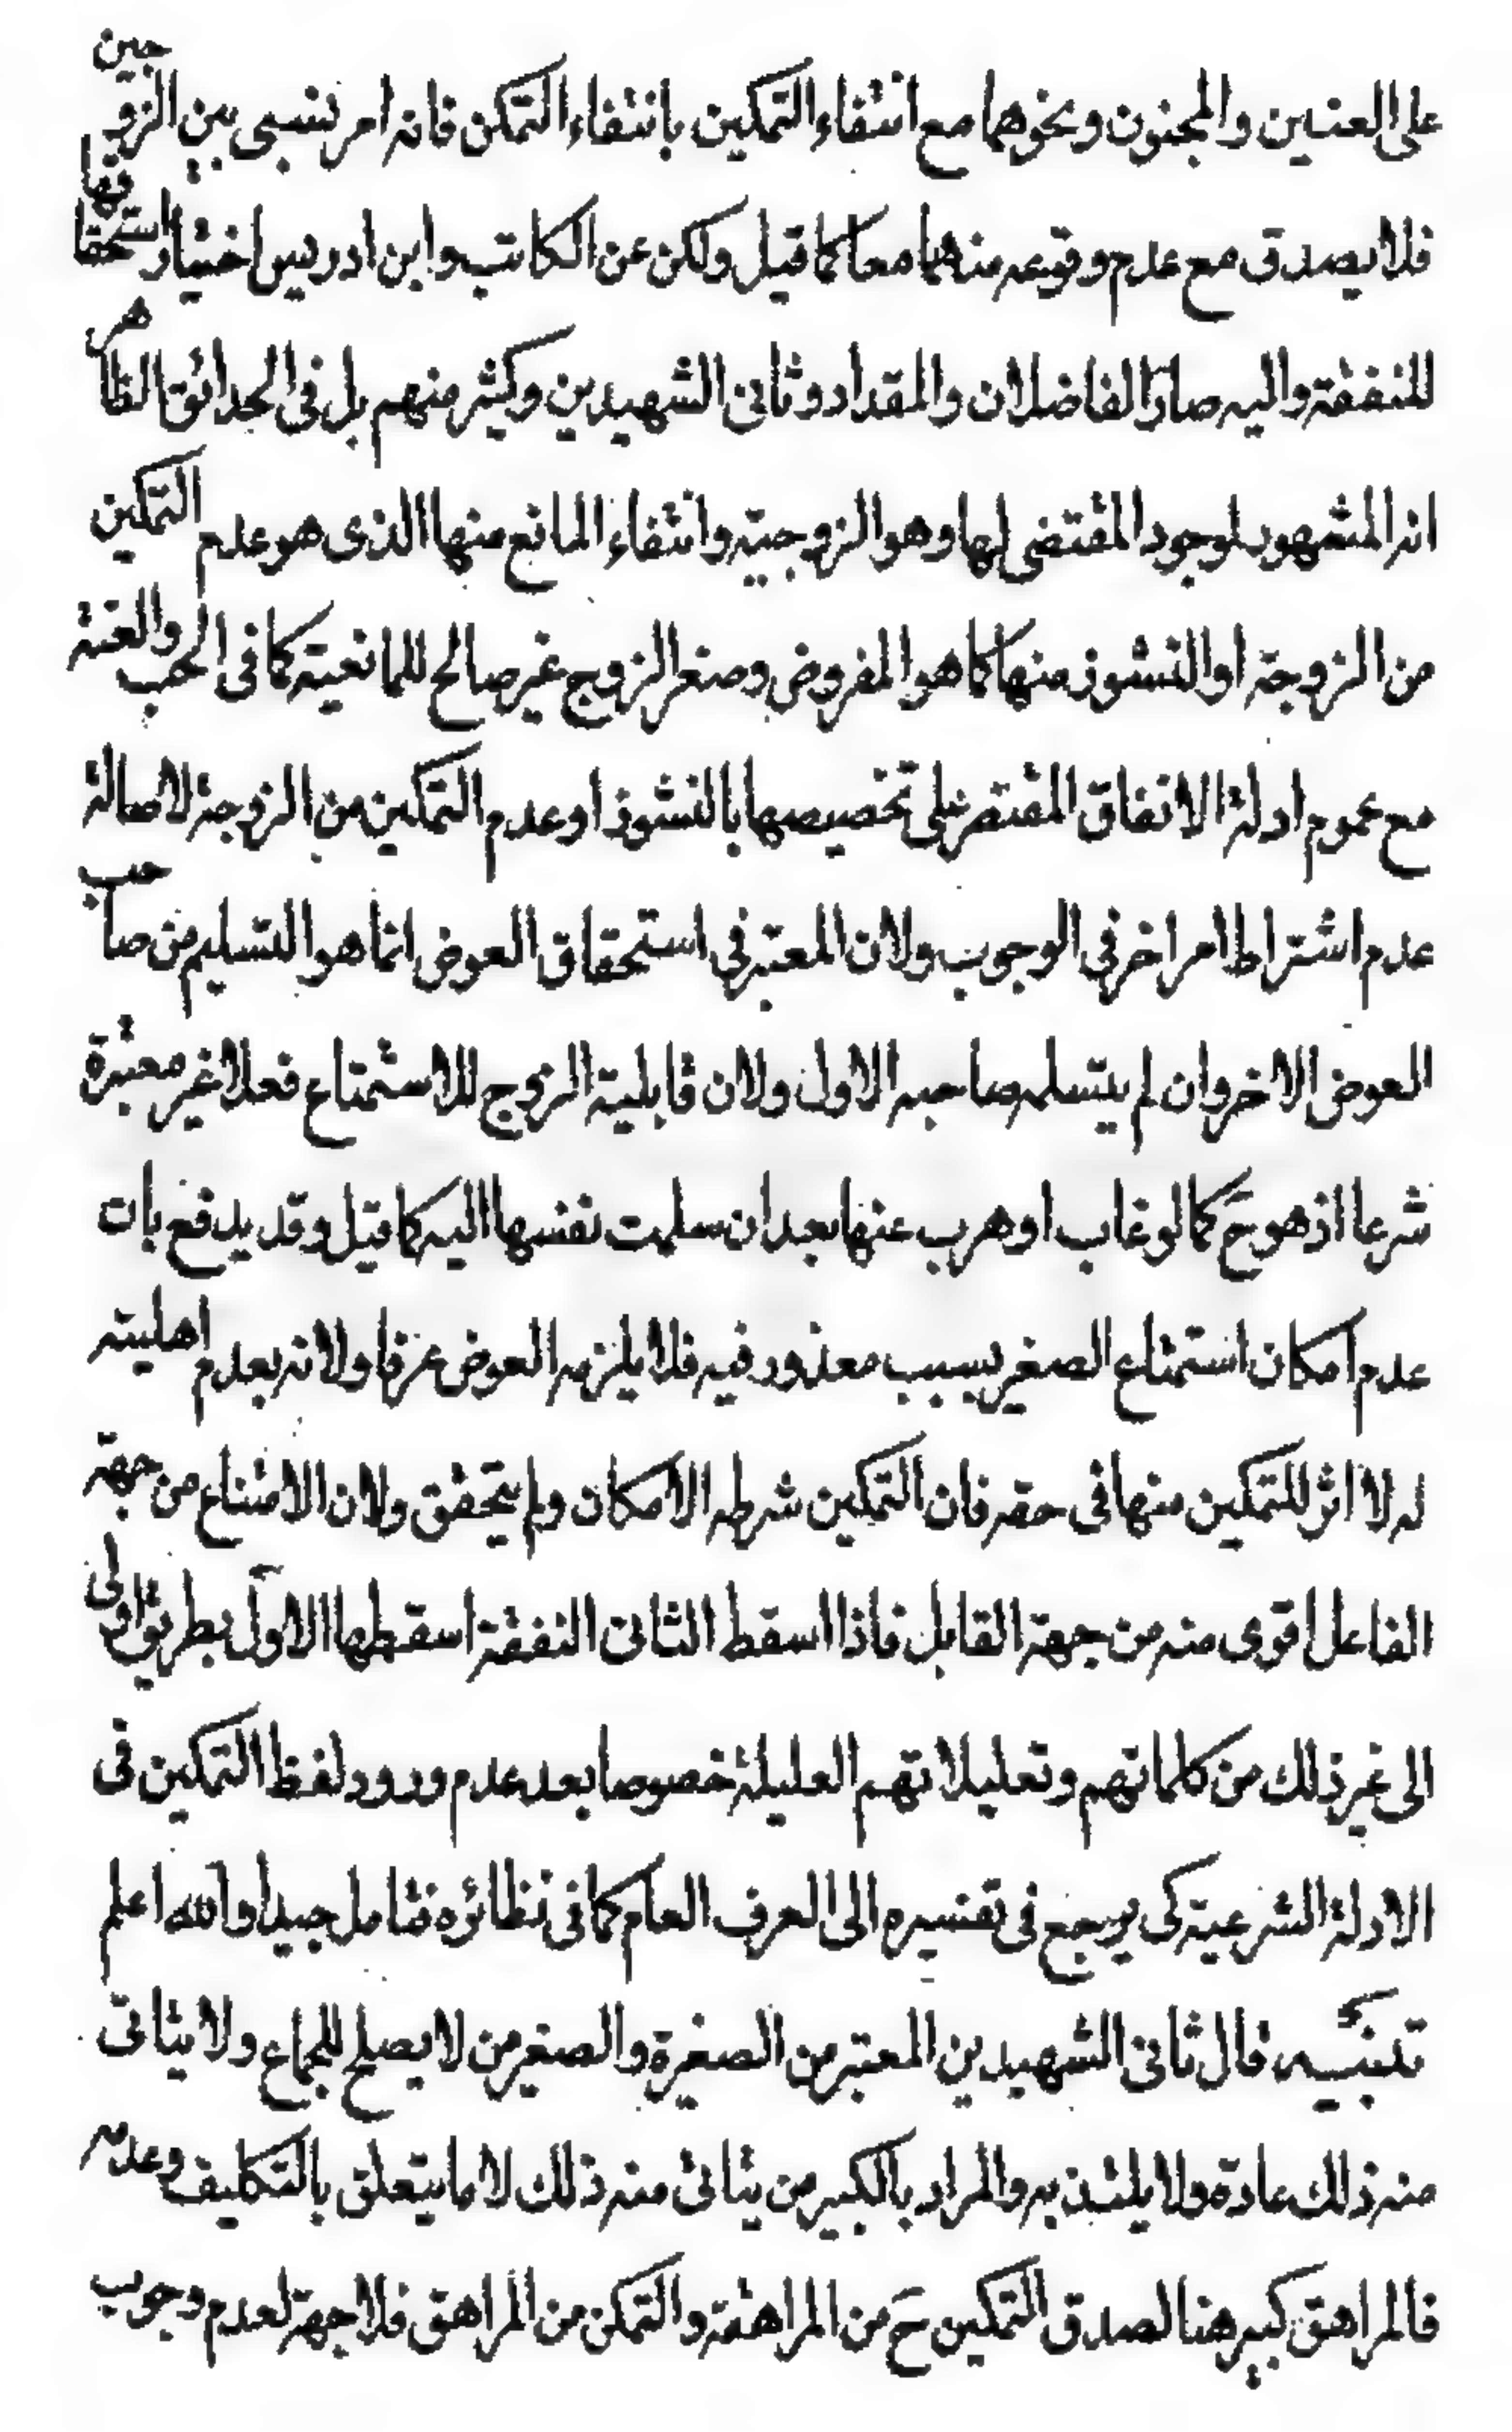 على العنين والمجنون ونحوهما مع انتفاء التمكين بانتفاء التمكن فانه امر نسبى بين الزوجين
فلا يصدق مع عدم وقوعه منهما معا كما قيل ولكن عن الكاتب وابن ادريس اختيار استحقاقها
للنفقة واليه صار الفاضلان والمقداد وثانى الشهيدين وكثير منهم بل فى الحدائق الظاهر
انه المشهور لوجود المقتضى لها وهو الزوجية وانتفاء المانع منها الذى هو عدم التمكين
من الزوجة او النشوز منها كما هو المفروض وصغر الزوج غير صالح للمانعية كما فى الجب والعنة
مع عموم ادلة الانفاق المقتصر على تخصيصها بالنشوز او عدم التمكين من الزوجة لاصالة
عدم اشتراط امر اخر فى الوجوب ولان المعتبر فى استحقاق العوض انما هو التسليم من صاحب
العوض الاخر وان لم يتسلمه صاحبه الاول ولان قابلية الزوج للاستمتاع فعلا غير معتبرة
شرعا اذ هو ح كما لو غاب او هرب عنها بعد ان سلمت نفسها اليه كما قيل وقد يدفع بان
عدم امكان استمتاع الصغير بسبب معذور فيه فلا يلزمه العوض عرفا ولانه بعدم اهليته
له لا اثر للتمكين منها فى حقه فان التمكين شرطه الامكان ولم يتحقق ولان الامتناع من جهة
الفاعل اقوى منه من جهة القابل فاذا اسقط الثانى النفقة اسقطها الاول بطريق اولى
الى غير ذلك من كلماتهم وتعليلاتهم العليلة خصوصا بعد عدم ورود لفظ التمكين فى
الادلة الشرعية كى يرجع فى تفسيره الى العرف العام كما فى نظائره فتامل جيدا والله اعلم
تنبيه قال ثانى الشهيدين المعتبر من الصغيرة والصغير من لا يصلح للجماع ولا يتاتى
منه ذلك عادة ولا يلتذ به والمراد بالكبير من يتاتى منه ذلك لا ما يتعلق بالتكليف وعدمه
فالمراهق كبير هنا لصدق التمكين ح من المراهقة والتمكن من المراهق فلا جهة لعدم وجوب